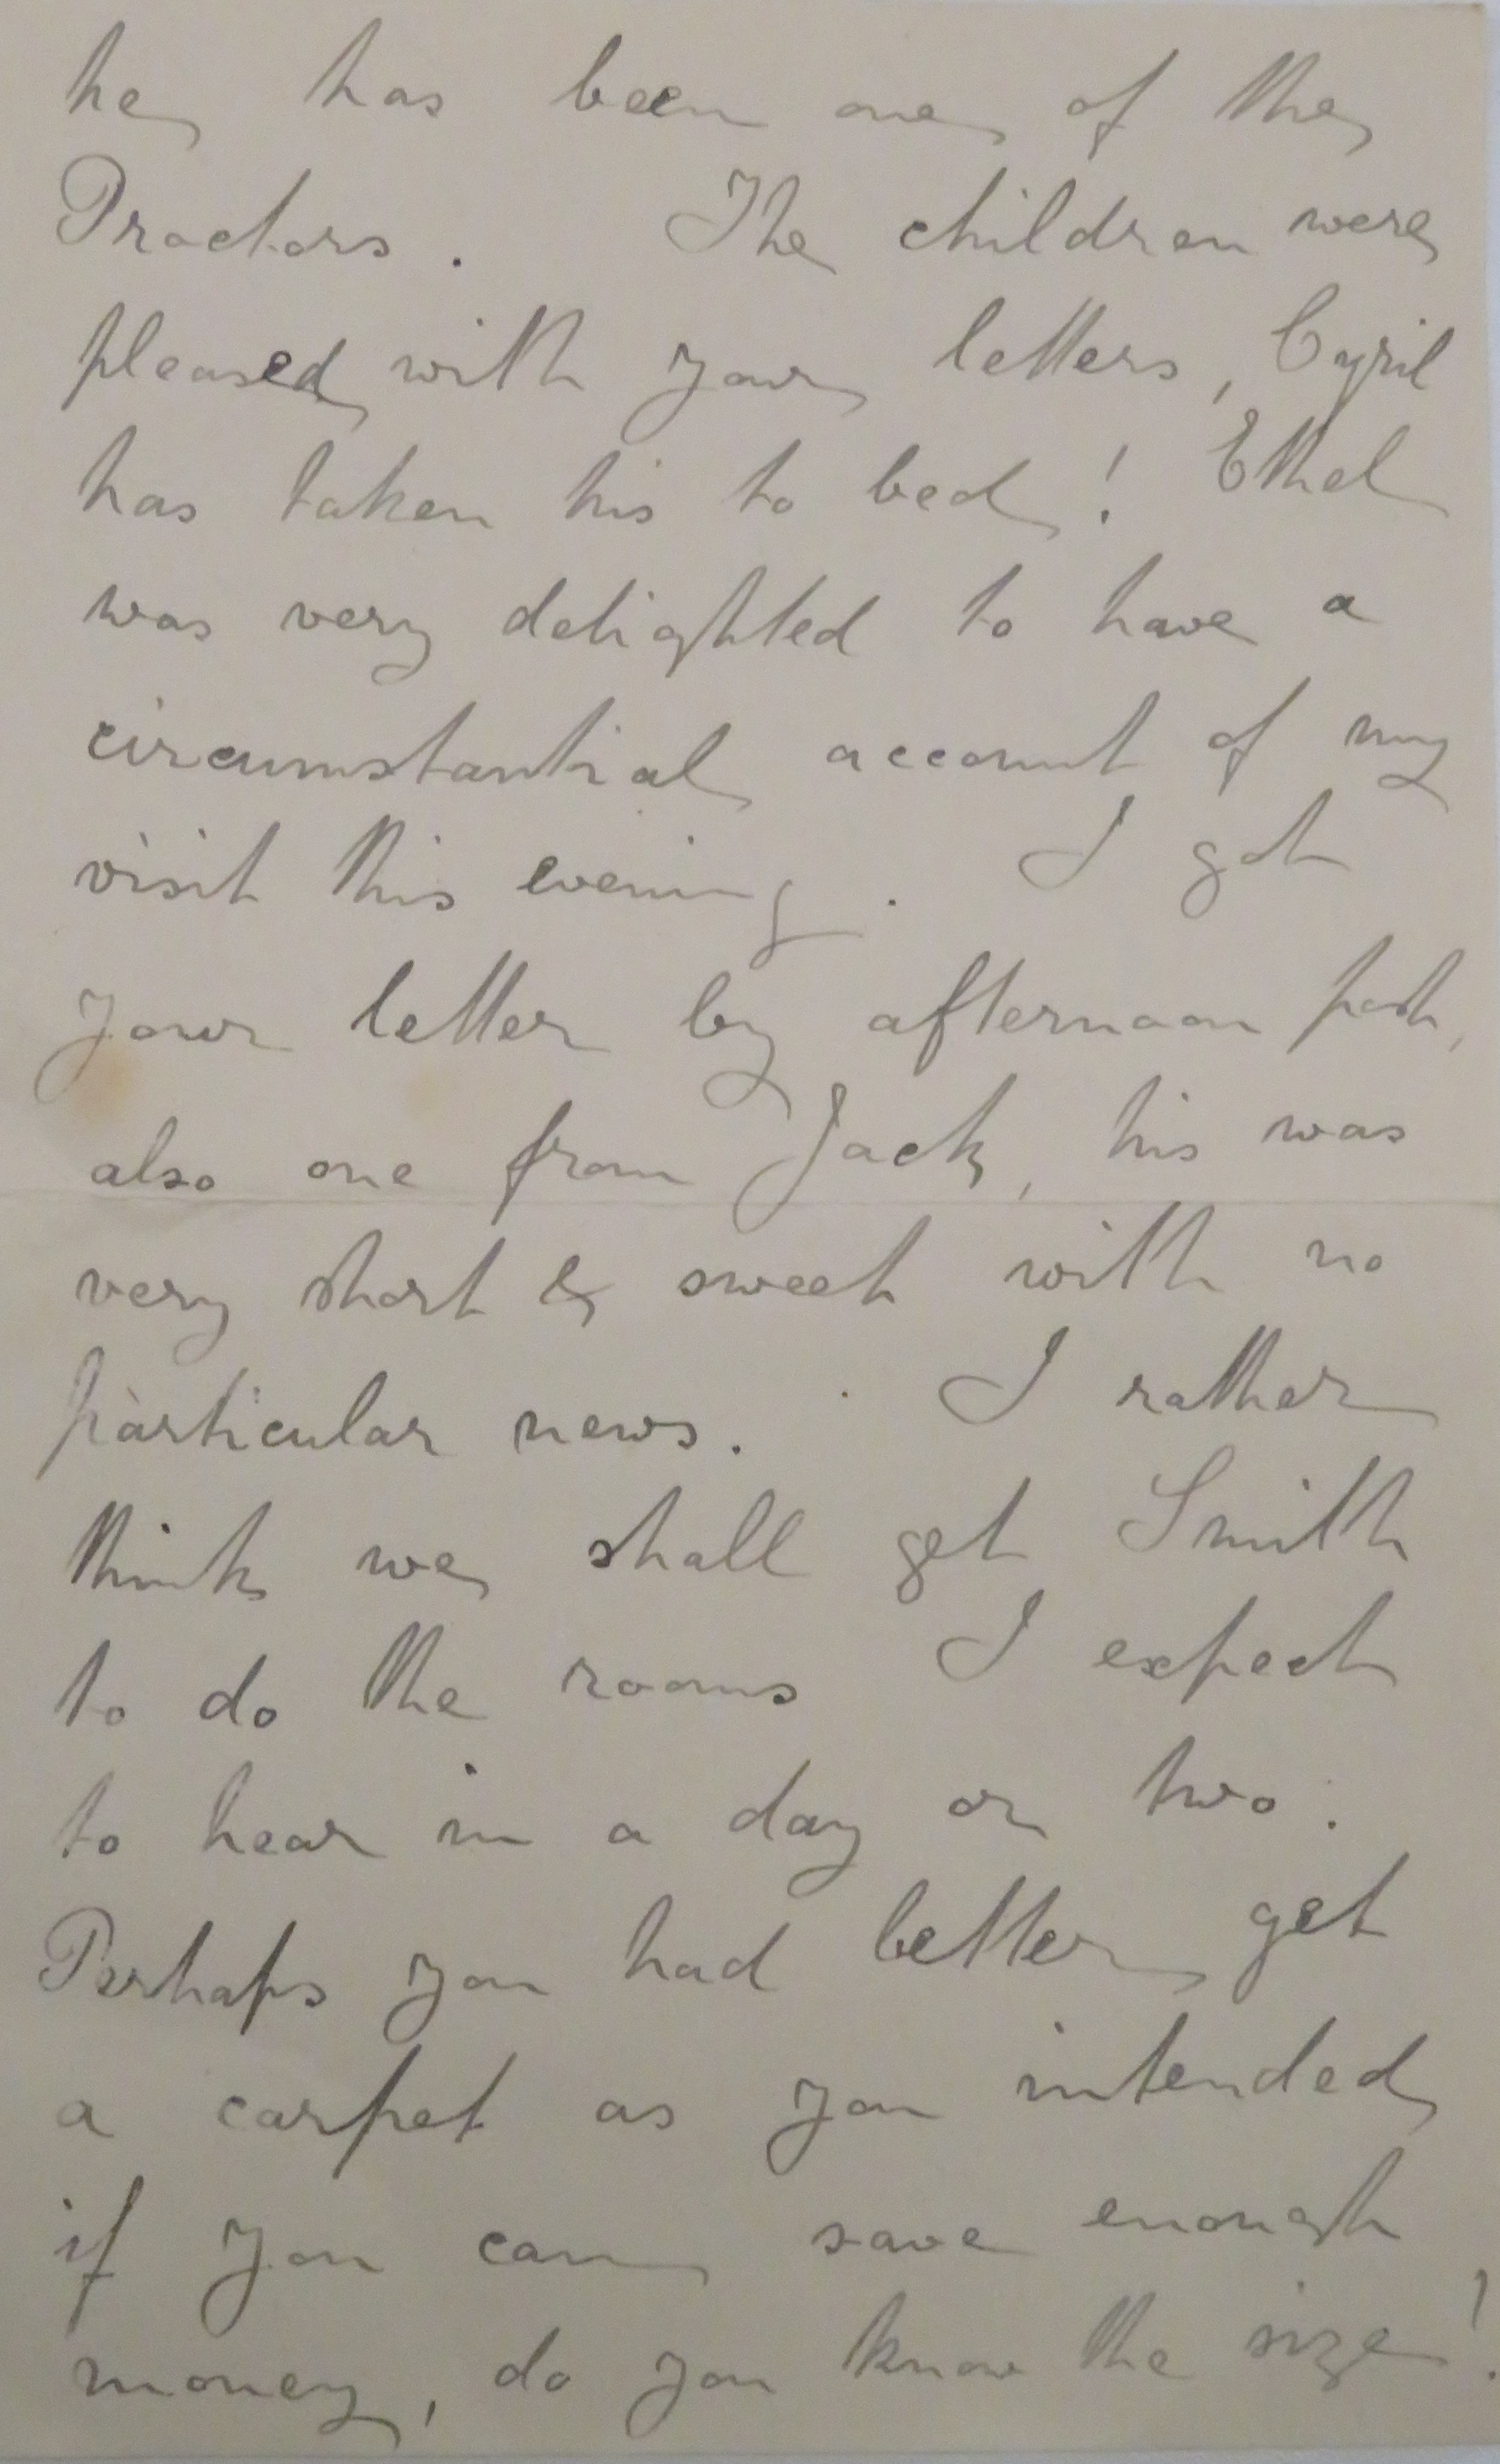 he has been one of the
Proctors. The children were
pleased with your letters, Cyril
has taken his to bed! Ethel
was very delighted to have a
circumstantial account of my
visit this evening. I got
your letter by afternoon post,
also one from Jack, his was
very short & sweet with no
particular news. I rather
think we shall get Smith
to do the rooms I expect
to hear in a day or two.
Perhaps you had better get
a carpet as you intended
if you can save enough
money, do you know the size!